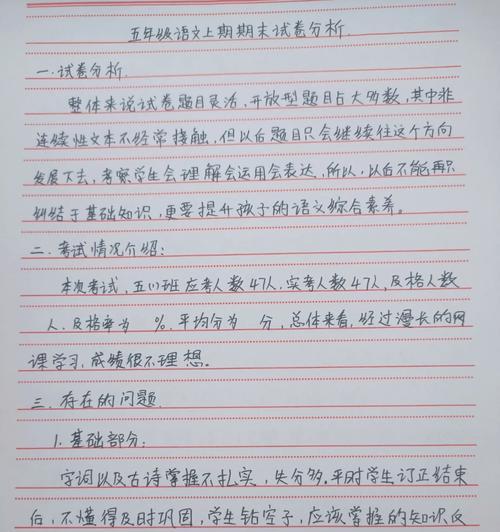 五年级语文上期期末试卷分析.
一.试卷分析.
整体来说试卷题目灵活,开放型题目占大多数,其中非
连续性文本不经常接触,但以后题目只会继续往这个方向
发展下去,考察学生会理解会运用会表达,所以,以后不能再只
纠结于基础知识,更要提升孩子的语文综合素养。
二.考试情况介绍:
本次考试,五(1)班应考人数47人,实考人数47人,及格人数
人.及格率为 %.平均分为 分,总体来看,经过漫长的网
课学习,成绩很不理想。
三.存在的问题.
1.基础部分:
字词以及古诗掌握不扎实,失分多.平时学生订正结束
后,不懂得及时巩固,学生钻空子,应该掌握的知识反